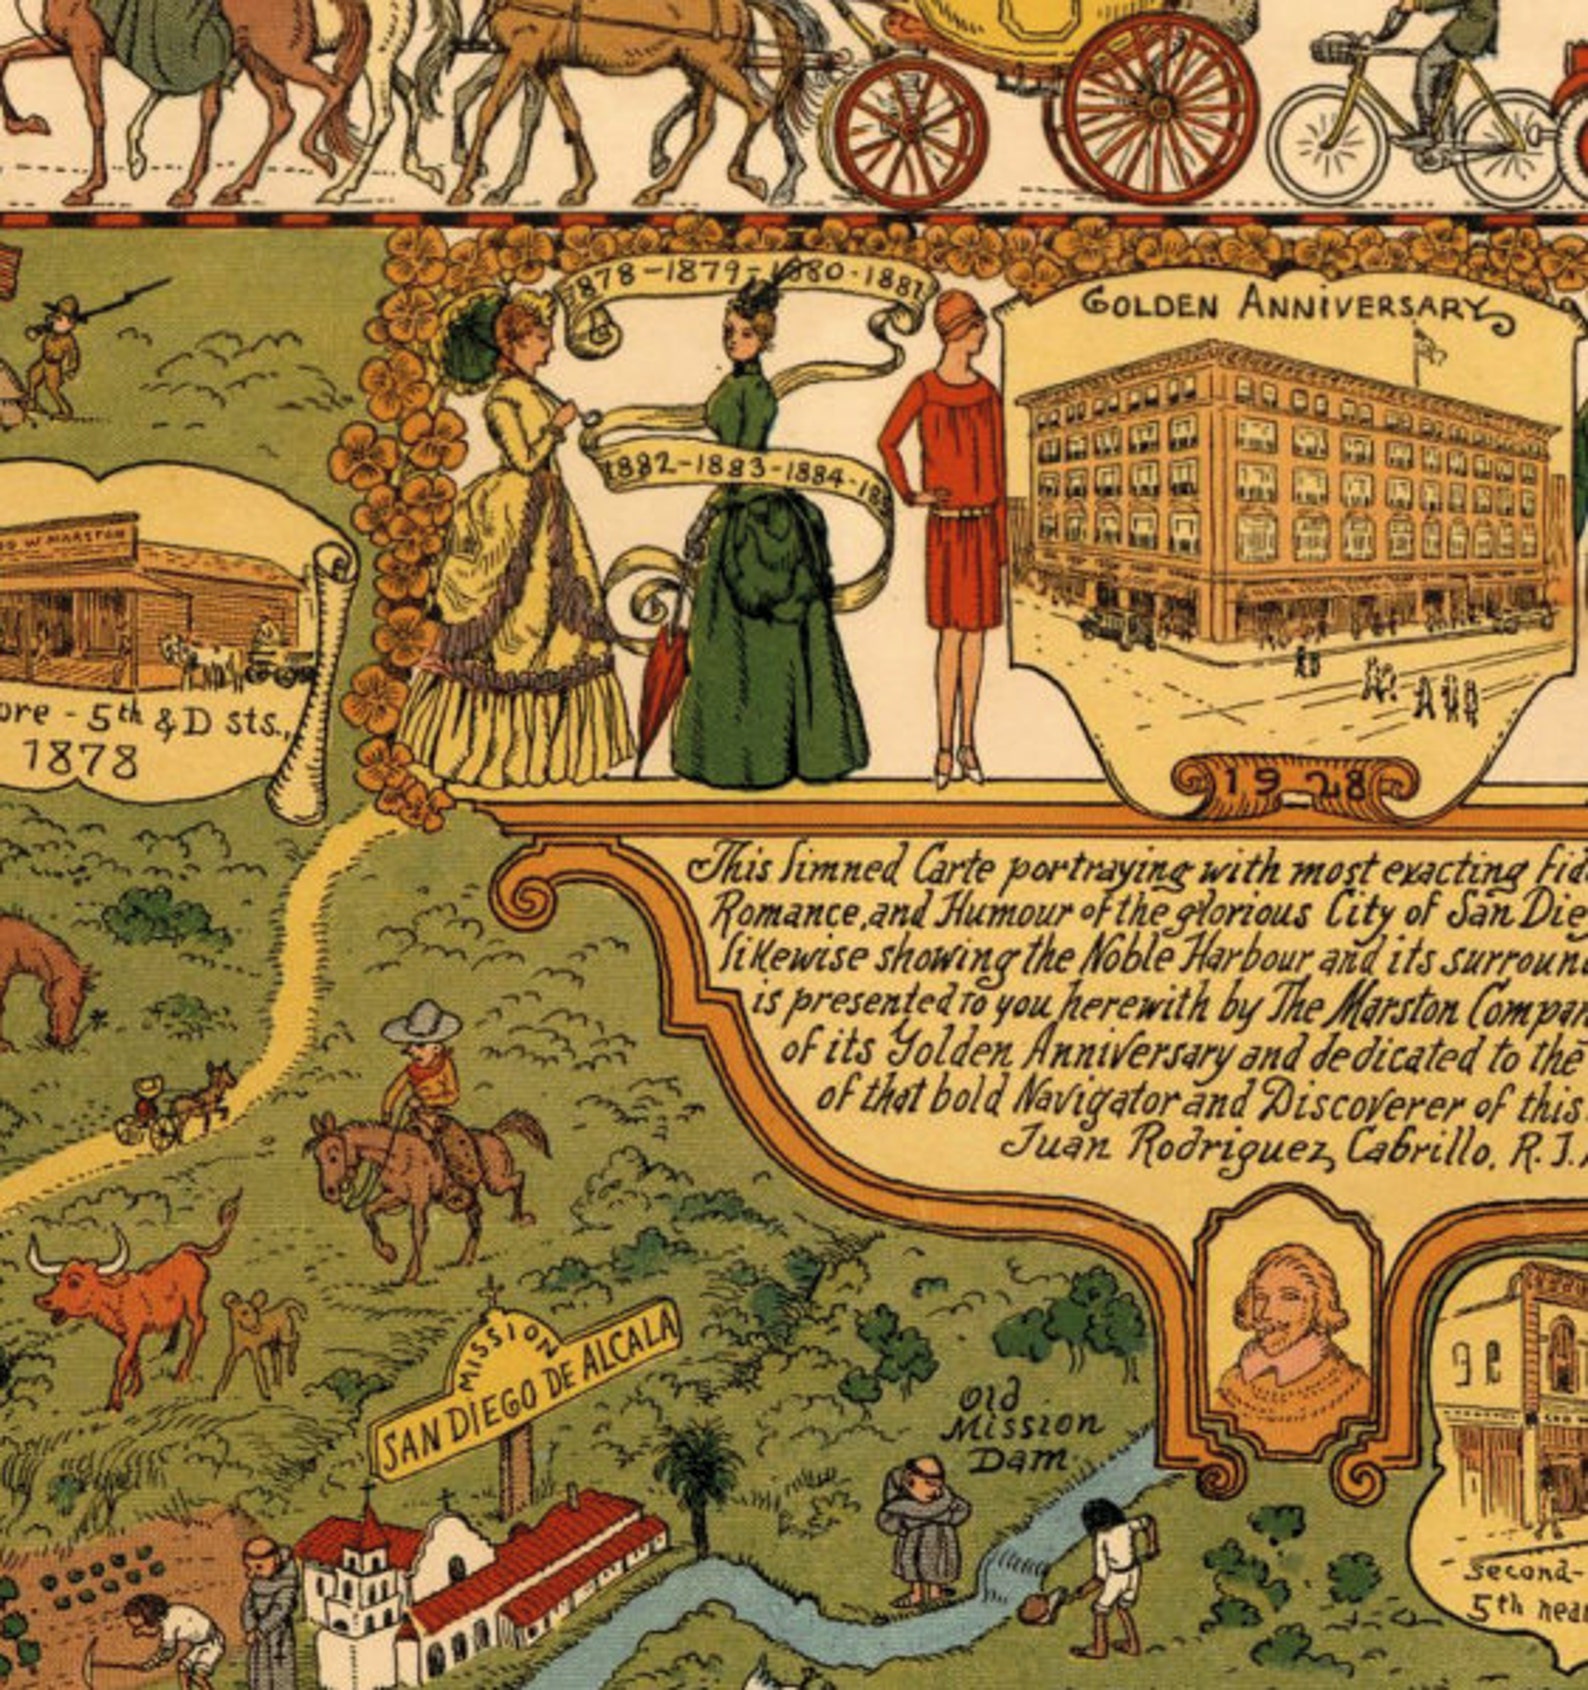 1878-1879-1880-1881
GOLDEN ANNIVERSARY
1882-1883-1884-188
W MARSTON
5th & D sts.,
1878
1928
This limned Carte portraying with most exacting
Romance, and Humour of the glorious City of San
likewise showing the Noble Harbour and its
is presented to you herewith by The Marston
of its Golden Anniversary and dedicated to the
of that bold Navigator and Discoverer of this
Juan Rodriguez Cabrillo. R.J.
MISSION
SAN DIEGO DE ALCALA
Old
Mission
Dam
second-
5th near